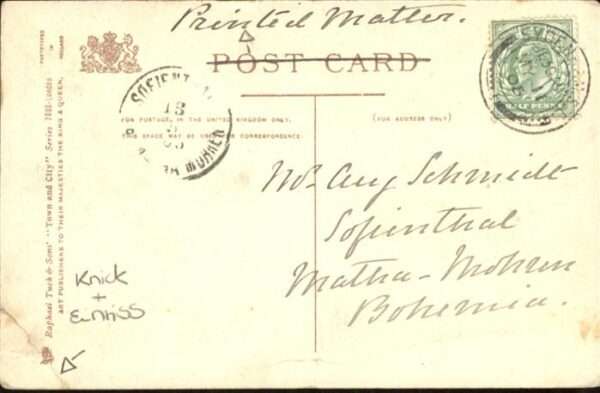 Printed Matter.
POST CARD
FOR POSTAGE, IN THE UNITED KINGDOM ONLY,
THIS SPACE MAY BE USED FOR CORRESPONDENCE.
(FOR ADDRESS ONLY)
HALF PENNY
SOFIENT
13
Mr. Aug Schmidt
Sofienthal
Matha-Mohren
Bohemia.
Knick
+
Einriss
Raphael Tuck & Sons' "Town and City" Series
ART PUBLISHERS TO THEIR MAJESTIES THE KING & QUEEN.